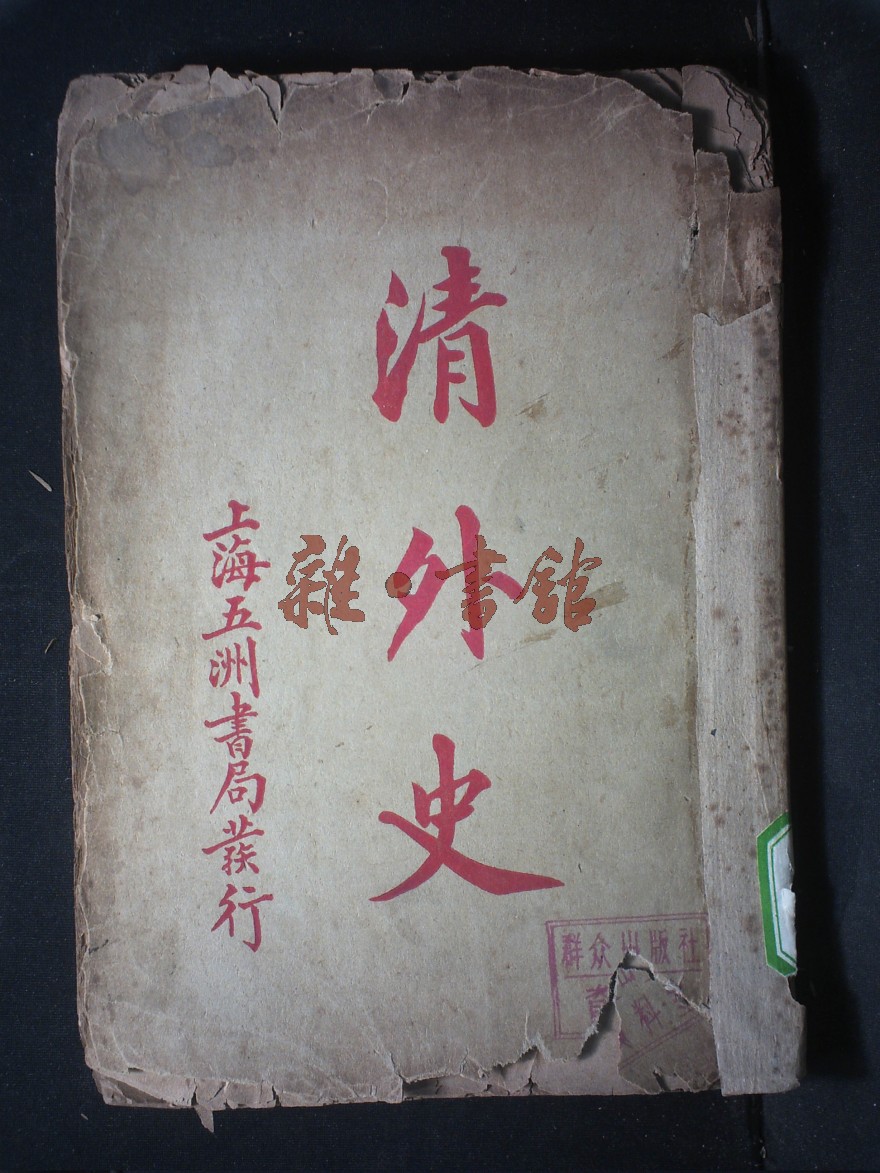 清外史
上海五洲書局發行
雜·書館
群众出版社
资料室